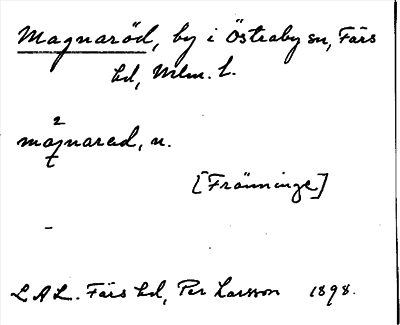 Magnaröd, by i Östraby sn, Färs
hd, Mlm. l.
2
magnarad, n.
[Fränninge]
L A L. Färs hd, Per Larsson 1898.